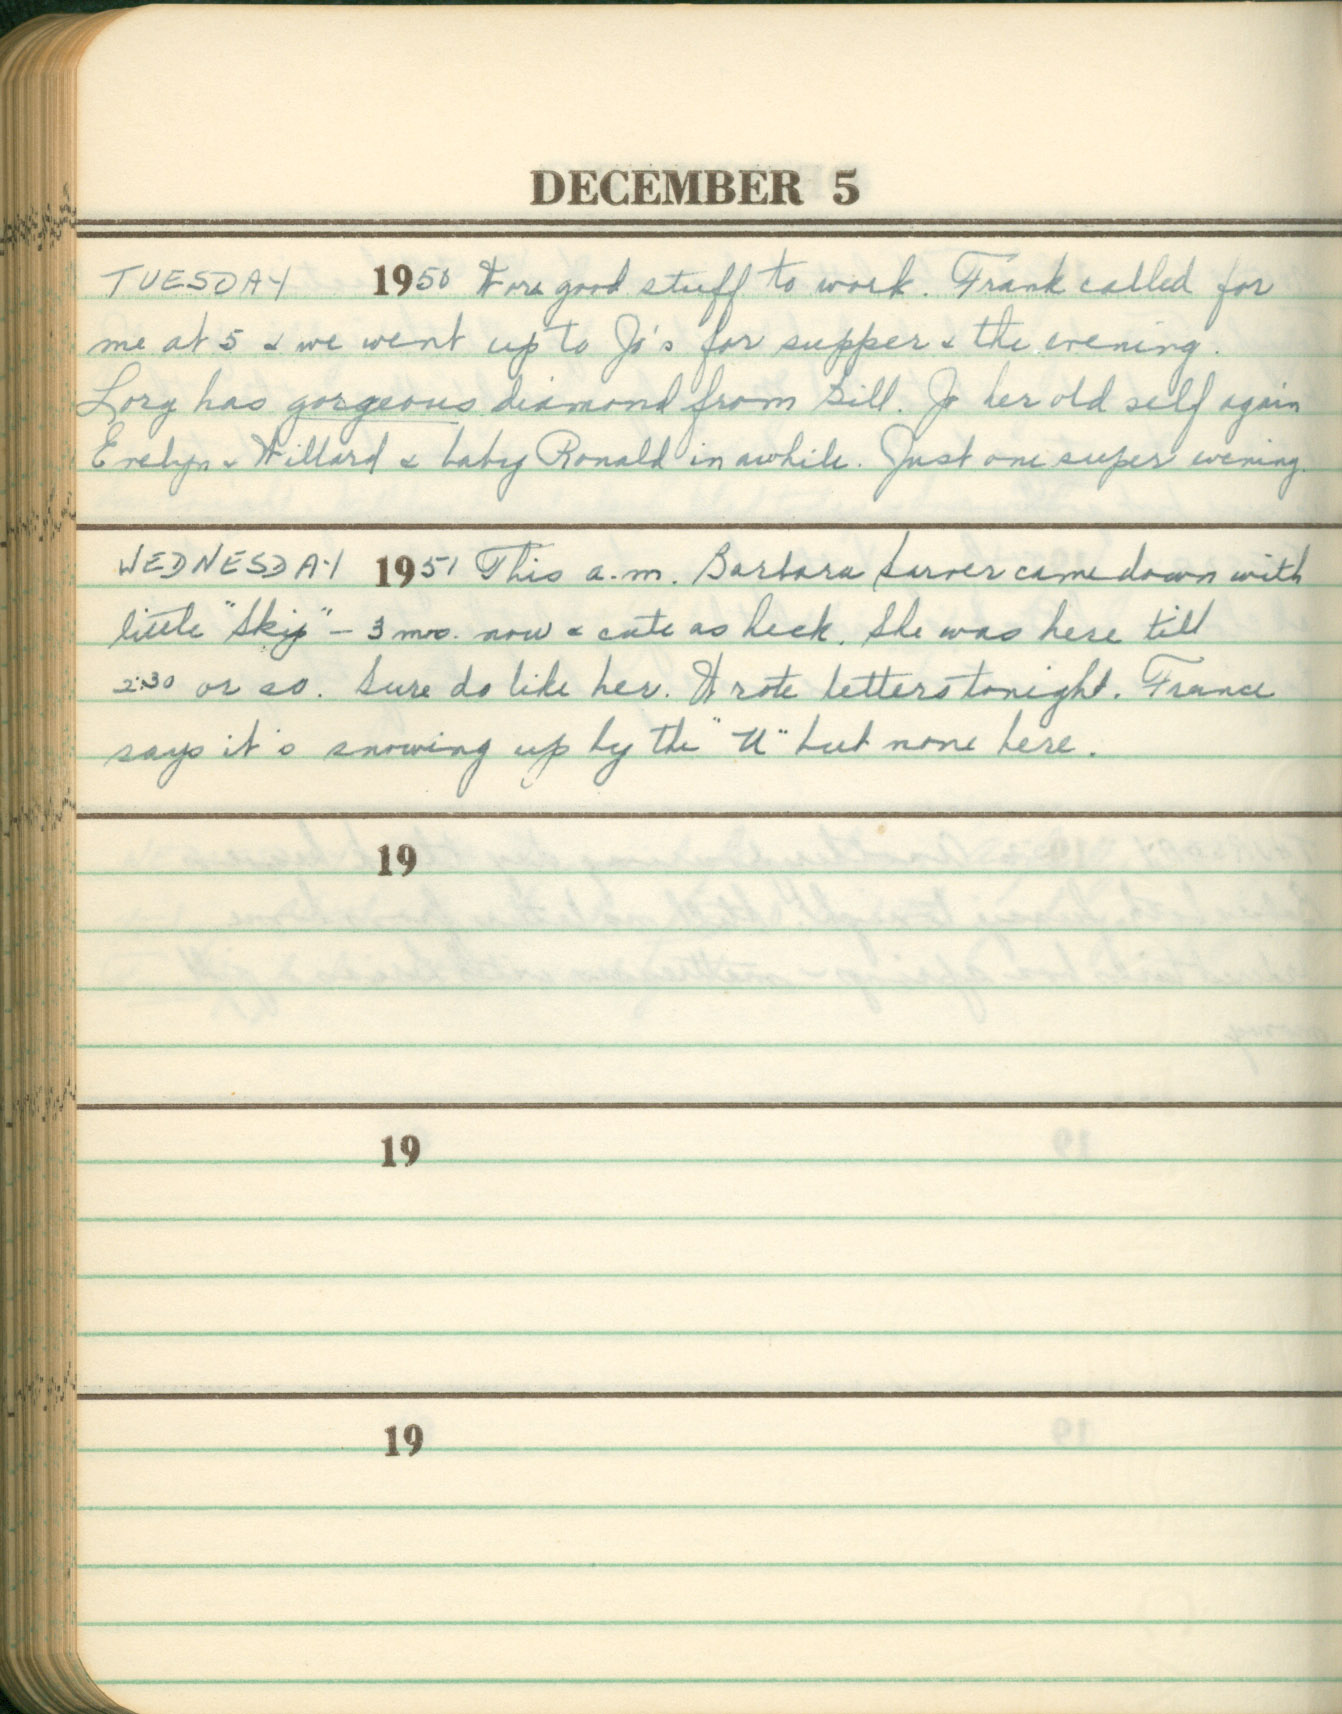 DECEMBER 5
TUESDAY 1950 Wore good stuff to work. Frank called for
me at 5 & we went up to Jo's for supper & the evening.
Lorg has gorgeous diamond from Bill. Jo her old self again
Evelyn & Willard & baby Ronald in awhile. Just one super evening.
WEDNESDAY 1951 This a.m. Barbara Sarver came down with
little "Skip" - 3 mos. now & cute as heck. She was here till
2:30 or so. Sure do like her. Wrote letters tonight. France
says it's snowing up by the "U" but none here.
19
19
19